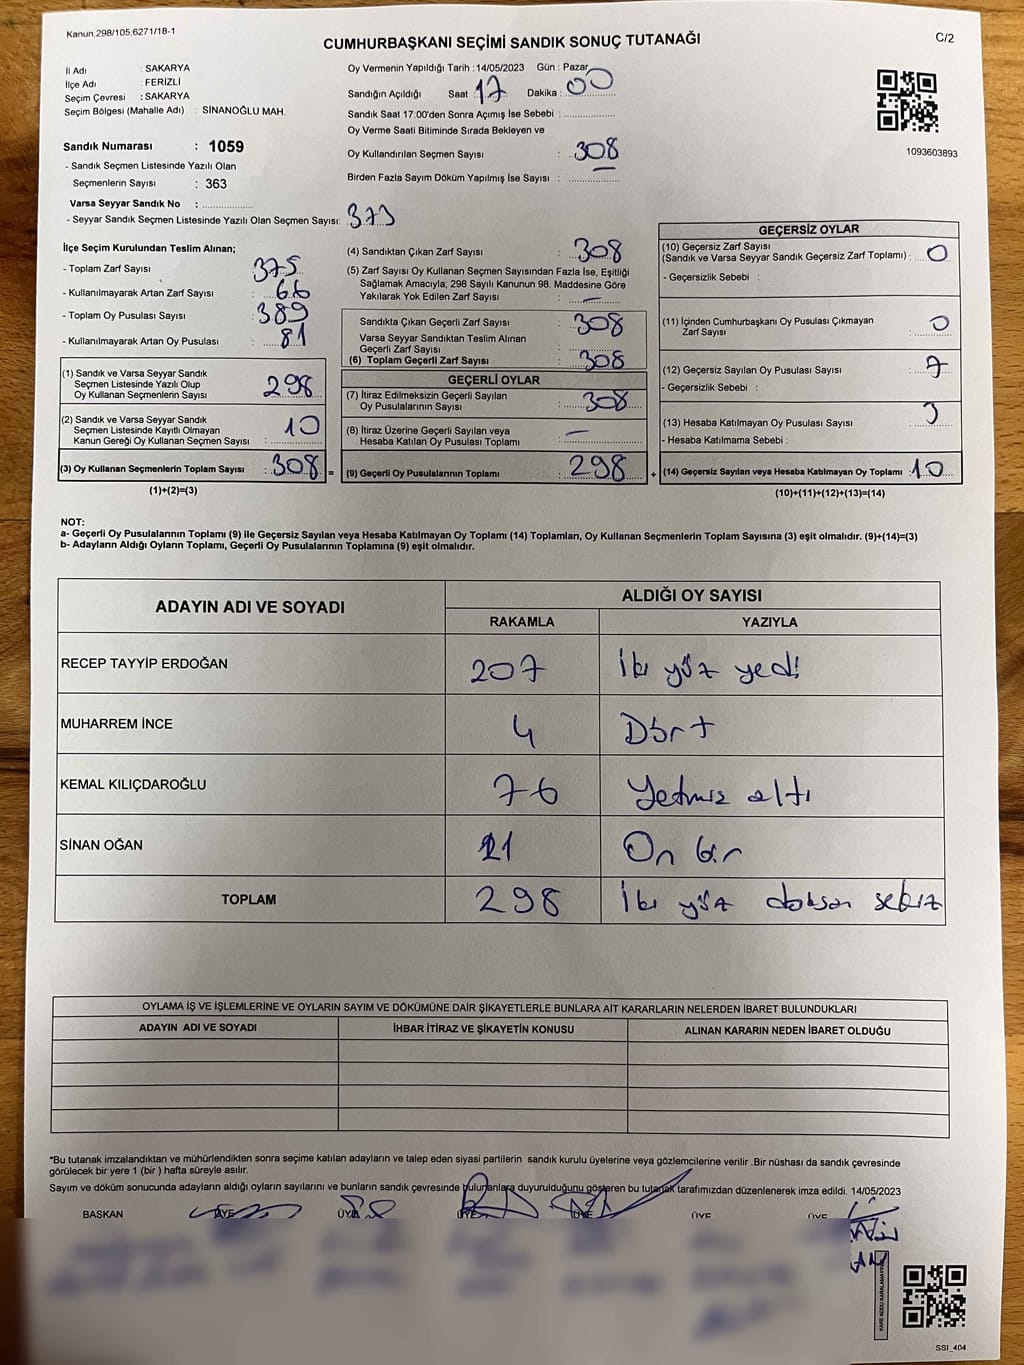 Kanun.298/105,6271/18-1
CUMHURBAŞKANI SEÇİMİ SANDIK SONUÇ TUTANAĞI
C/2
İl Adı : SAKARYA
İlçe Adı : FERİZLİ
Seçim Çevresi : SAKARYA
Seçim Bölgesi (Mahalle Adı) : SİNANOĞLU MAH.
Oy Vermenin Yapıldığı Tarih : 14/05/2023 Gün : Pazar
Sandığın Açıldığı Saat 17 Dakika : 00
Sandık Saat 17:00'den Sonra Açımış İse Sebebi :
Oy Verme Saati Bitiminde Sırada Bekleyen ve
Oy Kullandırılan Seçmen Sayısı : 308
Birden Fazla Sayım Döküm Yapılmış İse Sayısı :
1093603893
Sandık Numarası : 1059
- Sandık Seçmen Listesinde Yazılı Olan
Seçmenlerin Sayısı : 363
Varsa Seyyar Sandık No :
- Seyyar Sandık Seçmen Listesinde Yazılı Olan Seçmen Sayısı: 373
İlçe Seçim Kurulundan Teslim Alınan;
- Toplam Zarf Sayısı 375
- Kullanılmayarak Artan Zarf Sayısı : 66
- Toplam Oy Pusulası Sayısı : 389
- Kullanılmayarak Artan Oy Pusulası : 81
(1) Sandık ve Varsa Seyyar Sandık
Seçmen Listesinde Yazılı Olup
Oy Kullanan Seçmenlerin Sayısı : 298
(2) Sandık ve Varsa Seyyar Sandık
Seçmen Listesinde Kayıtlı Olmayan
Kanun Gereği Oy Kullanan Seçmen Sayısı : 10
(3) Oy Kullanan Seçmenlerin Toplam Sayısı : 308 =
(1)+(2)=(3)
(4) Sandıktan Çıkan Zarf Sayısı : 308
(5) Zarf Sayısı Oy Kullanan Seçmen Sayısından Fazla İse, Eşitliği
Sağlamak Amacıyla; 298 Sayılı Kanunun 98. Maddesine Göre
Yakılarak Yok Edilen Zarf Sayısı : —
Sandıkta Çıkan Geçerli Zarf Sayısı : 308
Varsa Seyyar Sandıktan Teslim Alınan
Geçerli Zarf Sayısı :
(6) Toplam Geçerli Zarf Sayısı : 308
GEÇERLİ OYLAR
(7) İtiraz Edilmeksizin Geçerli Sayılan
Oy Pusulalarının Sayısı : 308
(8) İtiraz Üzerine Geçerli Sayılan veya
Hesaba Katılan Oy Pusulası Toplamı : —
(9) Geçerli Oy Pusulalarının Toplamı : 298 +
GEÇERSİZ OYLAR
(10) Geçersiz Zarf Sayısı
(Sandık ve Varsa Seyyar Sandık Geçersiz Zarf Toplamı) : 0
- Geçersizlik Sebebi :
(11) İçinden Cumhurbaşkanı Oy Pusulası Çıkmayan
Zarf Sayısı : 0
(12) Geçersiz Sayılan Oy Pusulası Sayısı : 7
- Geçersizlik Sebebi :
(13) Hesaba Katılmayan Oy Pusulası Sayısı : 3
- Hesaba Katılmama Sebebi :
(14) Geçersiz Sayılan veya Hesaba Katılmayan Oy Toplamı : 10
(10)+(11)+(12)+(13)=(14)
NOT:
a- Geçerli Oy Pusulalarının Toplamı (9) ile Geçersiz Sayılan veya Hesaba Katılmayan Oy Toplamı (14) Toplamları, Oy Kullanan Seçmenlerin Toplam Sayısına (3) eşit olmalıdır. (9)+(14)=(3)
b- Adayların Aldığı Oyların Toplamı, Geçerli Oy Pusulalarının Toplamına (9) eşit olmalıdır.
ADAYIN ADI VE SOYADI ALDIĞI OY SAYISI
RAKAMLA YAZIYLA
RECEP TAYYİP ERDOĞAN 207 İki yüz yedi
MUHARREM İNCE 4 Dört
KEMAL KILIÇDAROĞLU 76 Yetmiş altı
SİNAN OĞAN 11 On bir
TOPLAM 298 İki yüz doksan sekiz
OYLAMA İŞ VE İŞLEMLERİNE VE OYLARIN SAYIM VE DÖKÜMÜNE DAİR ŞİKAYETLERLE BUNLARA AİT KARARLARIN NELERDEN İBARET BULUNDUKLARI
ADAYIN ADI VE SOYADI İHBAR İTİRAZ VE ŞİKAYETİN KONUSU ALINAN KARARIN NEDEN İBARET OLDUĞU
*Bu tutanak imzalandıktan ve mühürlendikten sonra seçime katılan adayların ve talep eden siyasi partilerin sandık kurulu üyelerine veya gözlemcilerine verilir .Bir nüshası da sandık çevresinde
görülecek bir yere 1 (bir ) hafta süreyle asılır.
Sayım ve döküm sonucunda adayların aldığı oyların sayılarını ve bunların sandık çevresinde bulunanlara duyurulduğunu gösteren bu tutanak tarafımızdan düzenlenerek imza edildi. 14/05/2023
BAŞKAN ÜYE ÜYE ÜYE ÜYE ÜYE ÜYE
KARE KODU KARALAMAYINIZ
SSI_404